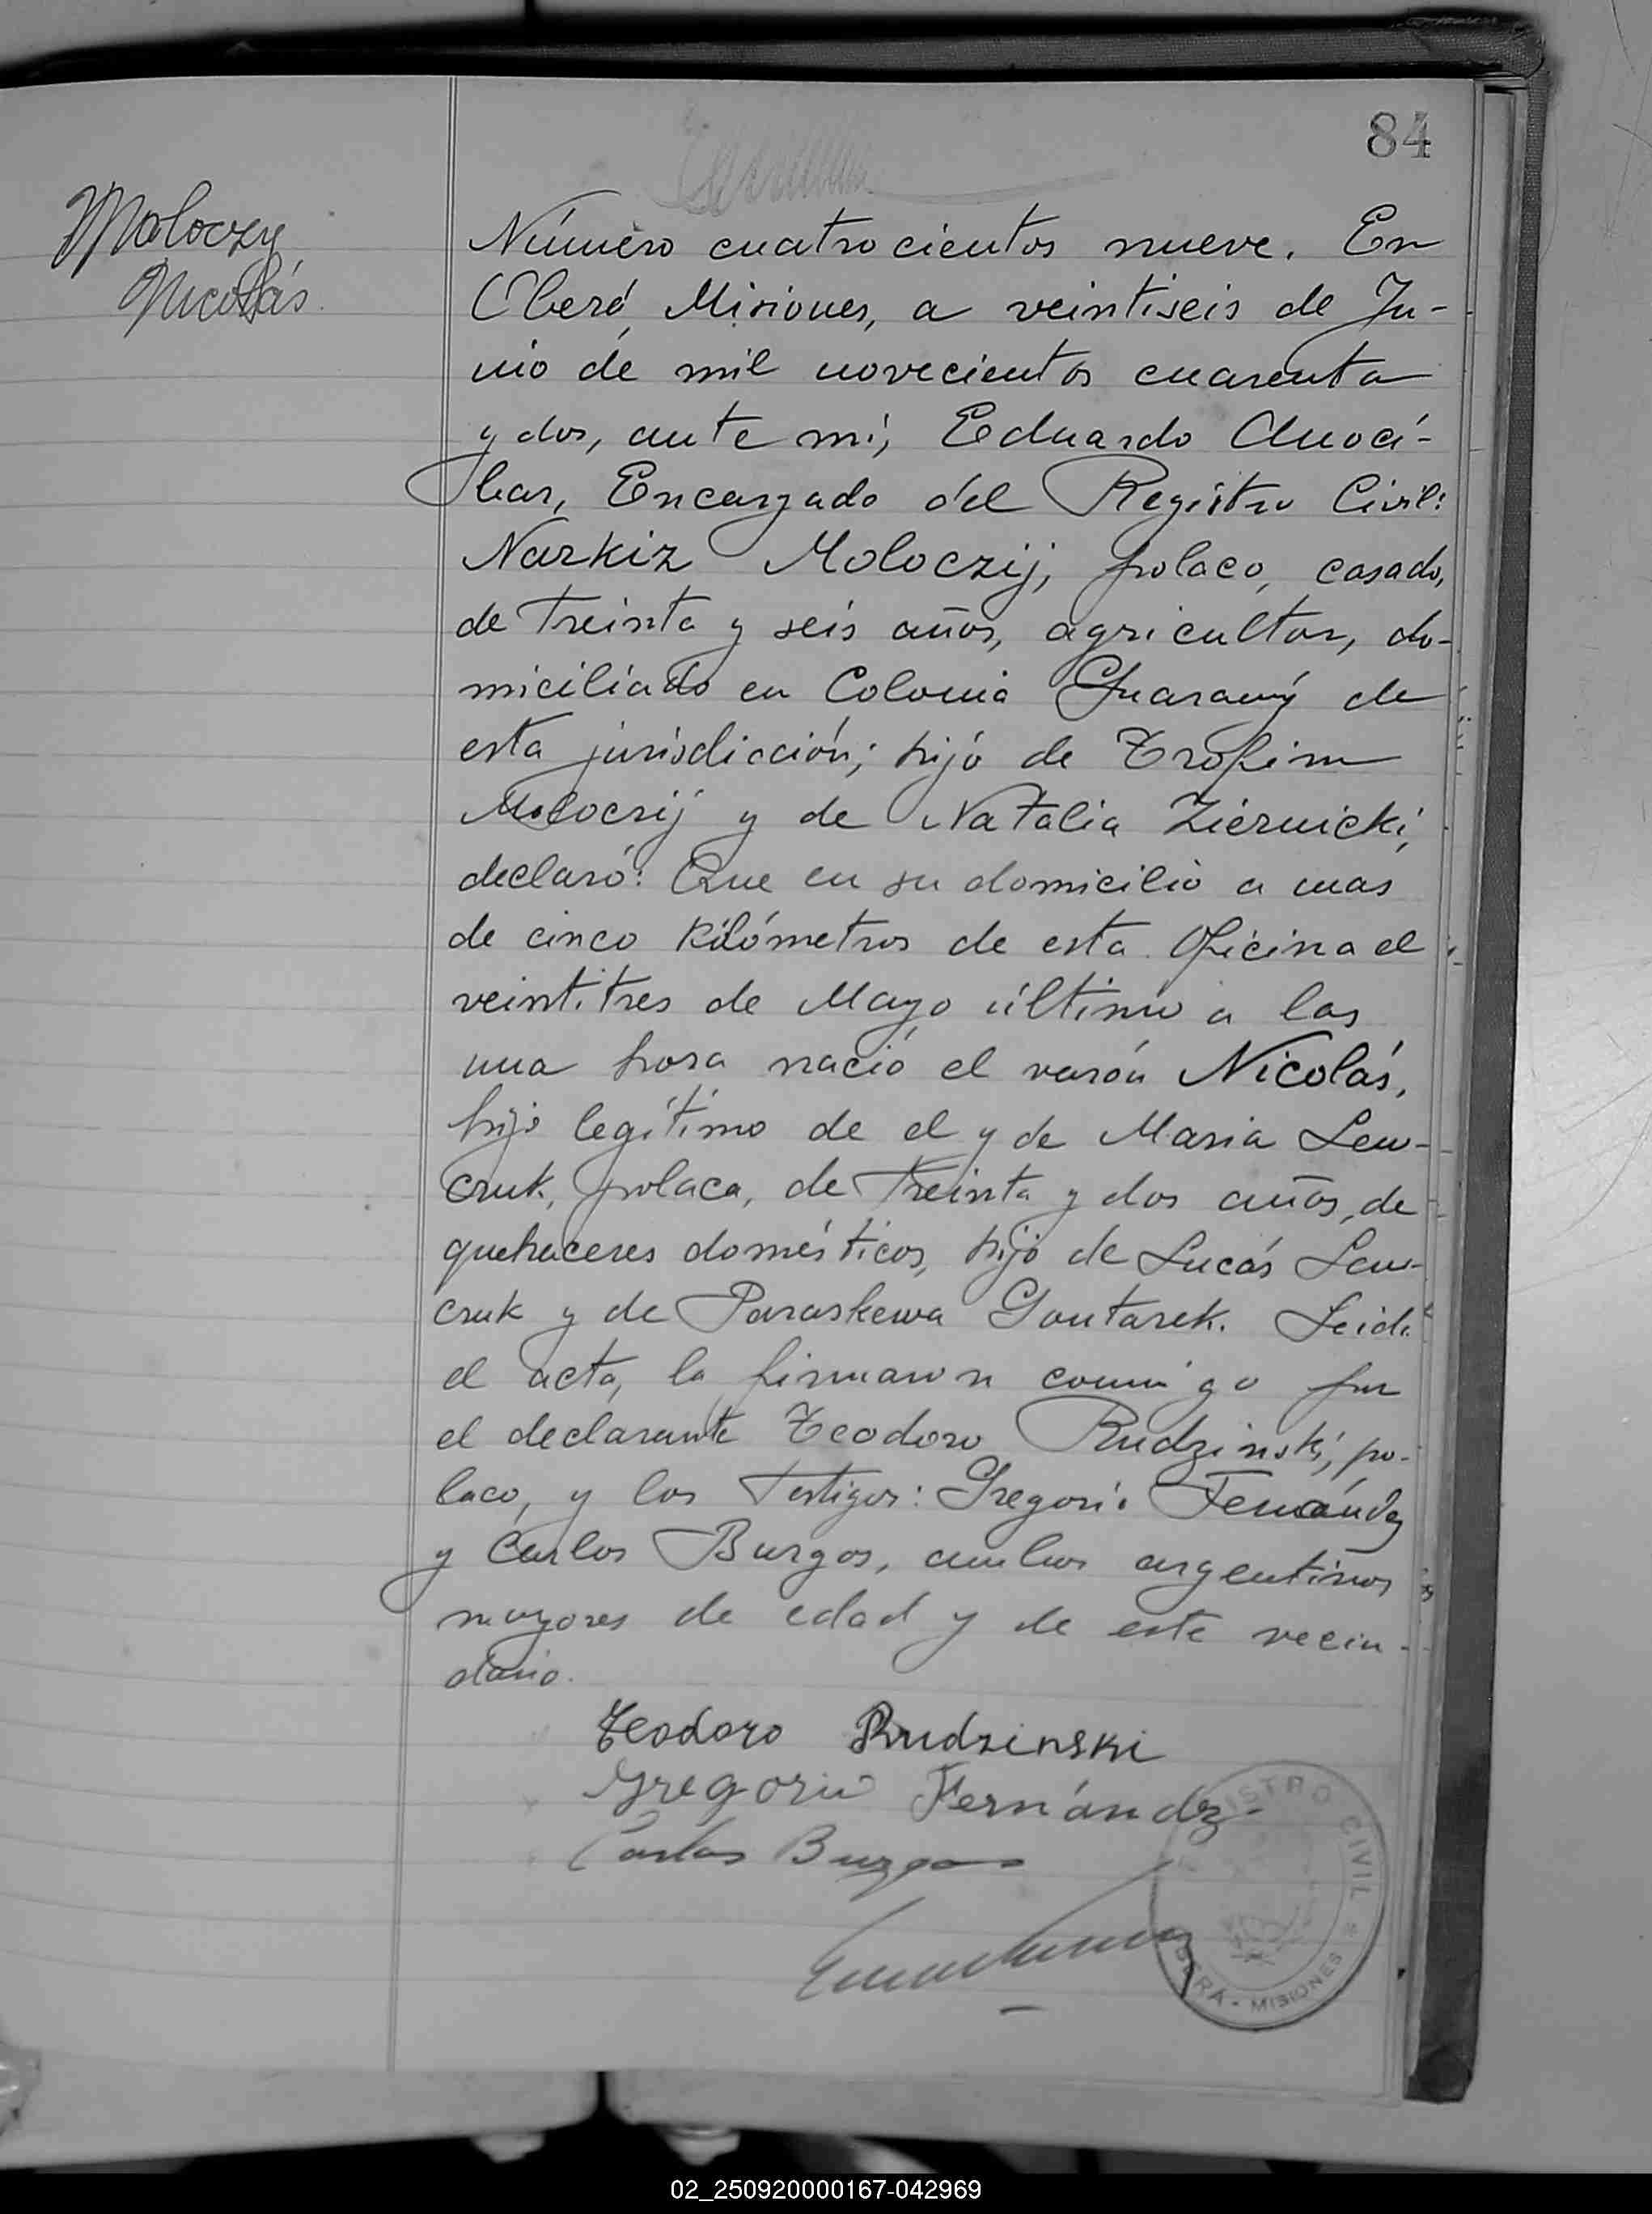 84
Moloczy
Nicolás
Número cuatrocientos nueve. En
Oberá, Misiones, a veintiseis de Ju-
nio de mil novecientos cuarenta
y dos, ante mi, Eduardo Anocí-
bar, Encargado del Registro Civil:
Narkiz Moloczij, polaco, casado,
de treinta y seis años, agricultor, do-
miciliado en Colonia Guarany de
esta jurisdicción; hijo de Trofim
Moloczij y de Natalia Ziernicki,
declaró: Que en su domicilio a mas
de cinco kilómetros de esta Oficina el
veintitres de Mayo último a las
una hora nació el varón Nicolás,
hijo legítimo de el y de Maria Lew-
cruk, polaca, de treinta y dos años, de
quehaceres domésticos, hijo de Lucás Lew-
cruk y de Paraskewa Gontarek. Leida
el acta, la firmaron conmigo por
el declarante Teodoro Rudzinski, po-
laco, y los testigos: Gregorio Fernández
y Carlos Burgos, ambos argentinos
mayores de edad y de este vecin-
dario.
Teodoro Rudzinski
Gregorio Fernández
Carlos Burgos
REGISTRO CIVIL
OBERÁ - MISIONES
02_250920000167-042969